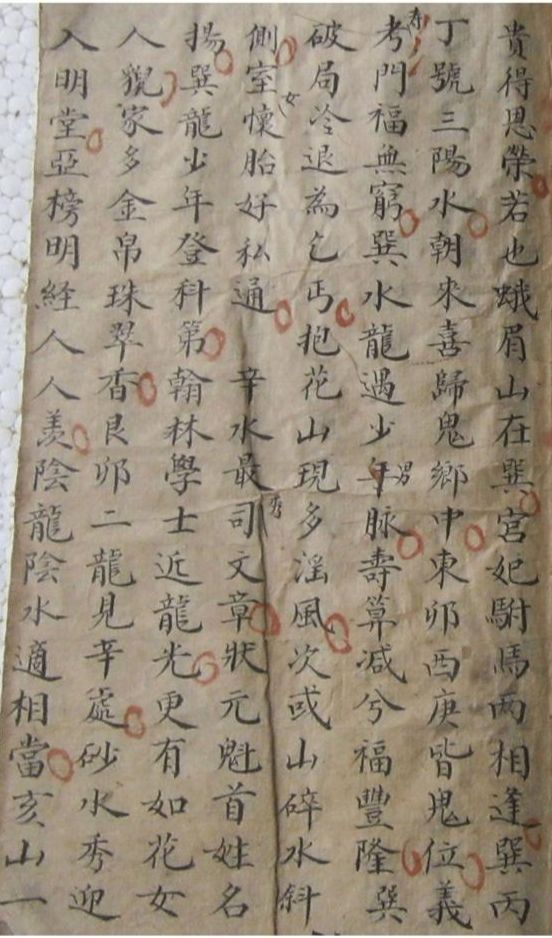 貴得恩榮若也蛾眉山在巽宮妃駙馬兩相逢巽丙
丁號三陽水朝來喜歸鬼鄉中東卯酉庚皆鬼位義
寿
考門福無窮巽水龍遇少年脉壽算減兮福豐隆巽
男
破局冷退為乞丐抱花山現多淫風次或山碎水斜
女
側室懷胎好私通 辛水最司文章狀元魁首姓名
秀
揚巽龍少年登科第翰林學士近龍光更有如花女
人貌家多金帛珠翠香艮卯二龍見辛處砂水秀迎
入明堂亞榜明経人人羨陰龍陰水適相當亥山一